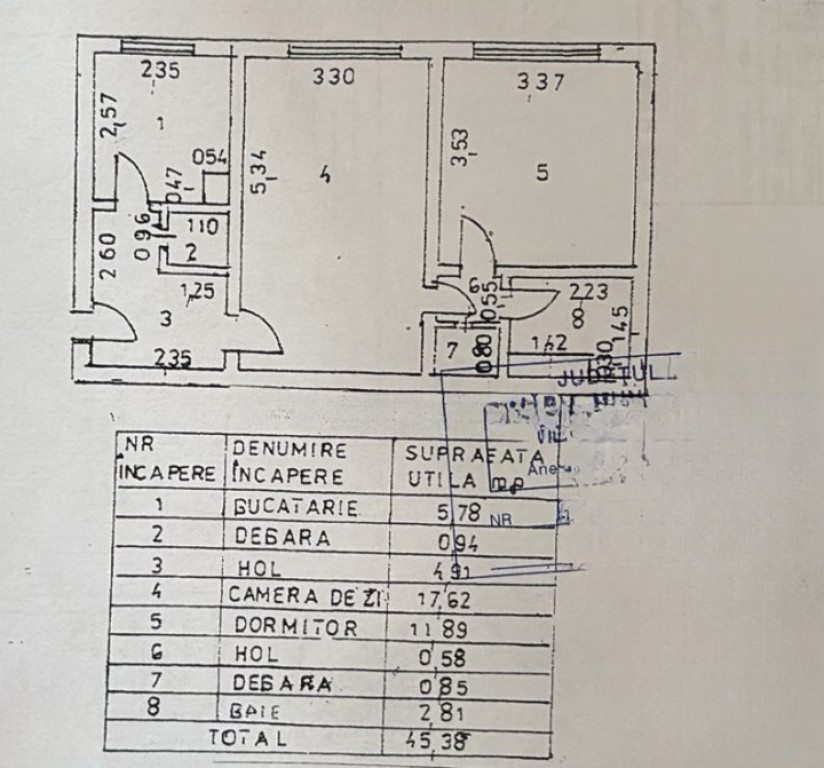 235
330
337
2,57
1
054
047
5,34
4
3,53
5
260
096
110
2
1,25
3
235
6
055
223
8
145
7
080
142
030
JUDETUL
NR ÎNCAPERE DENUMIRE ÎNCAPERE SUPRAFATA UTILA mp
Ane
NR
1 BUCATARIE 5,78
2 DEBARA 0,94
3 HOL 4,91
4 CAMERA DE ZI 17,62
5 DORMITOR 11,89
6 HOL 0,58
7 DEBARA 0,85
8 BAIE 2,81
TOTAL 45,38